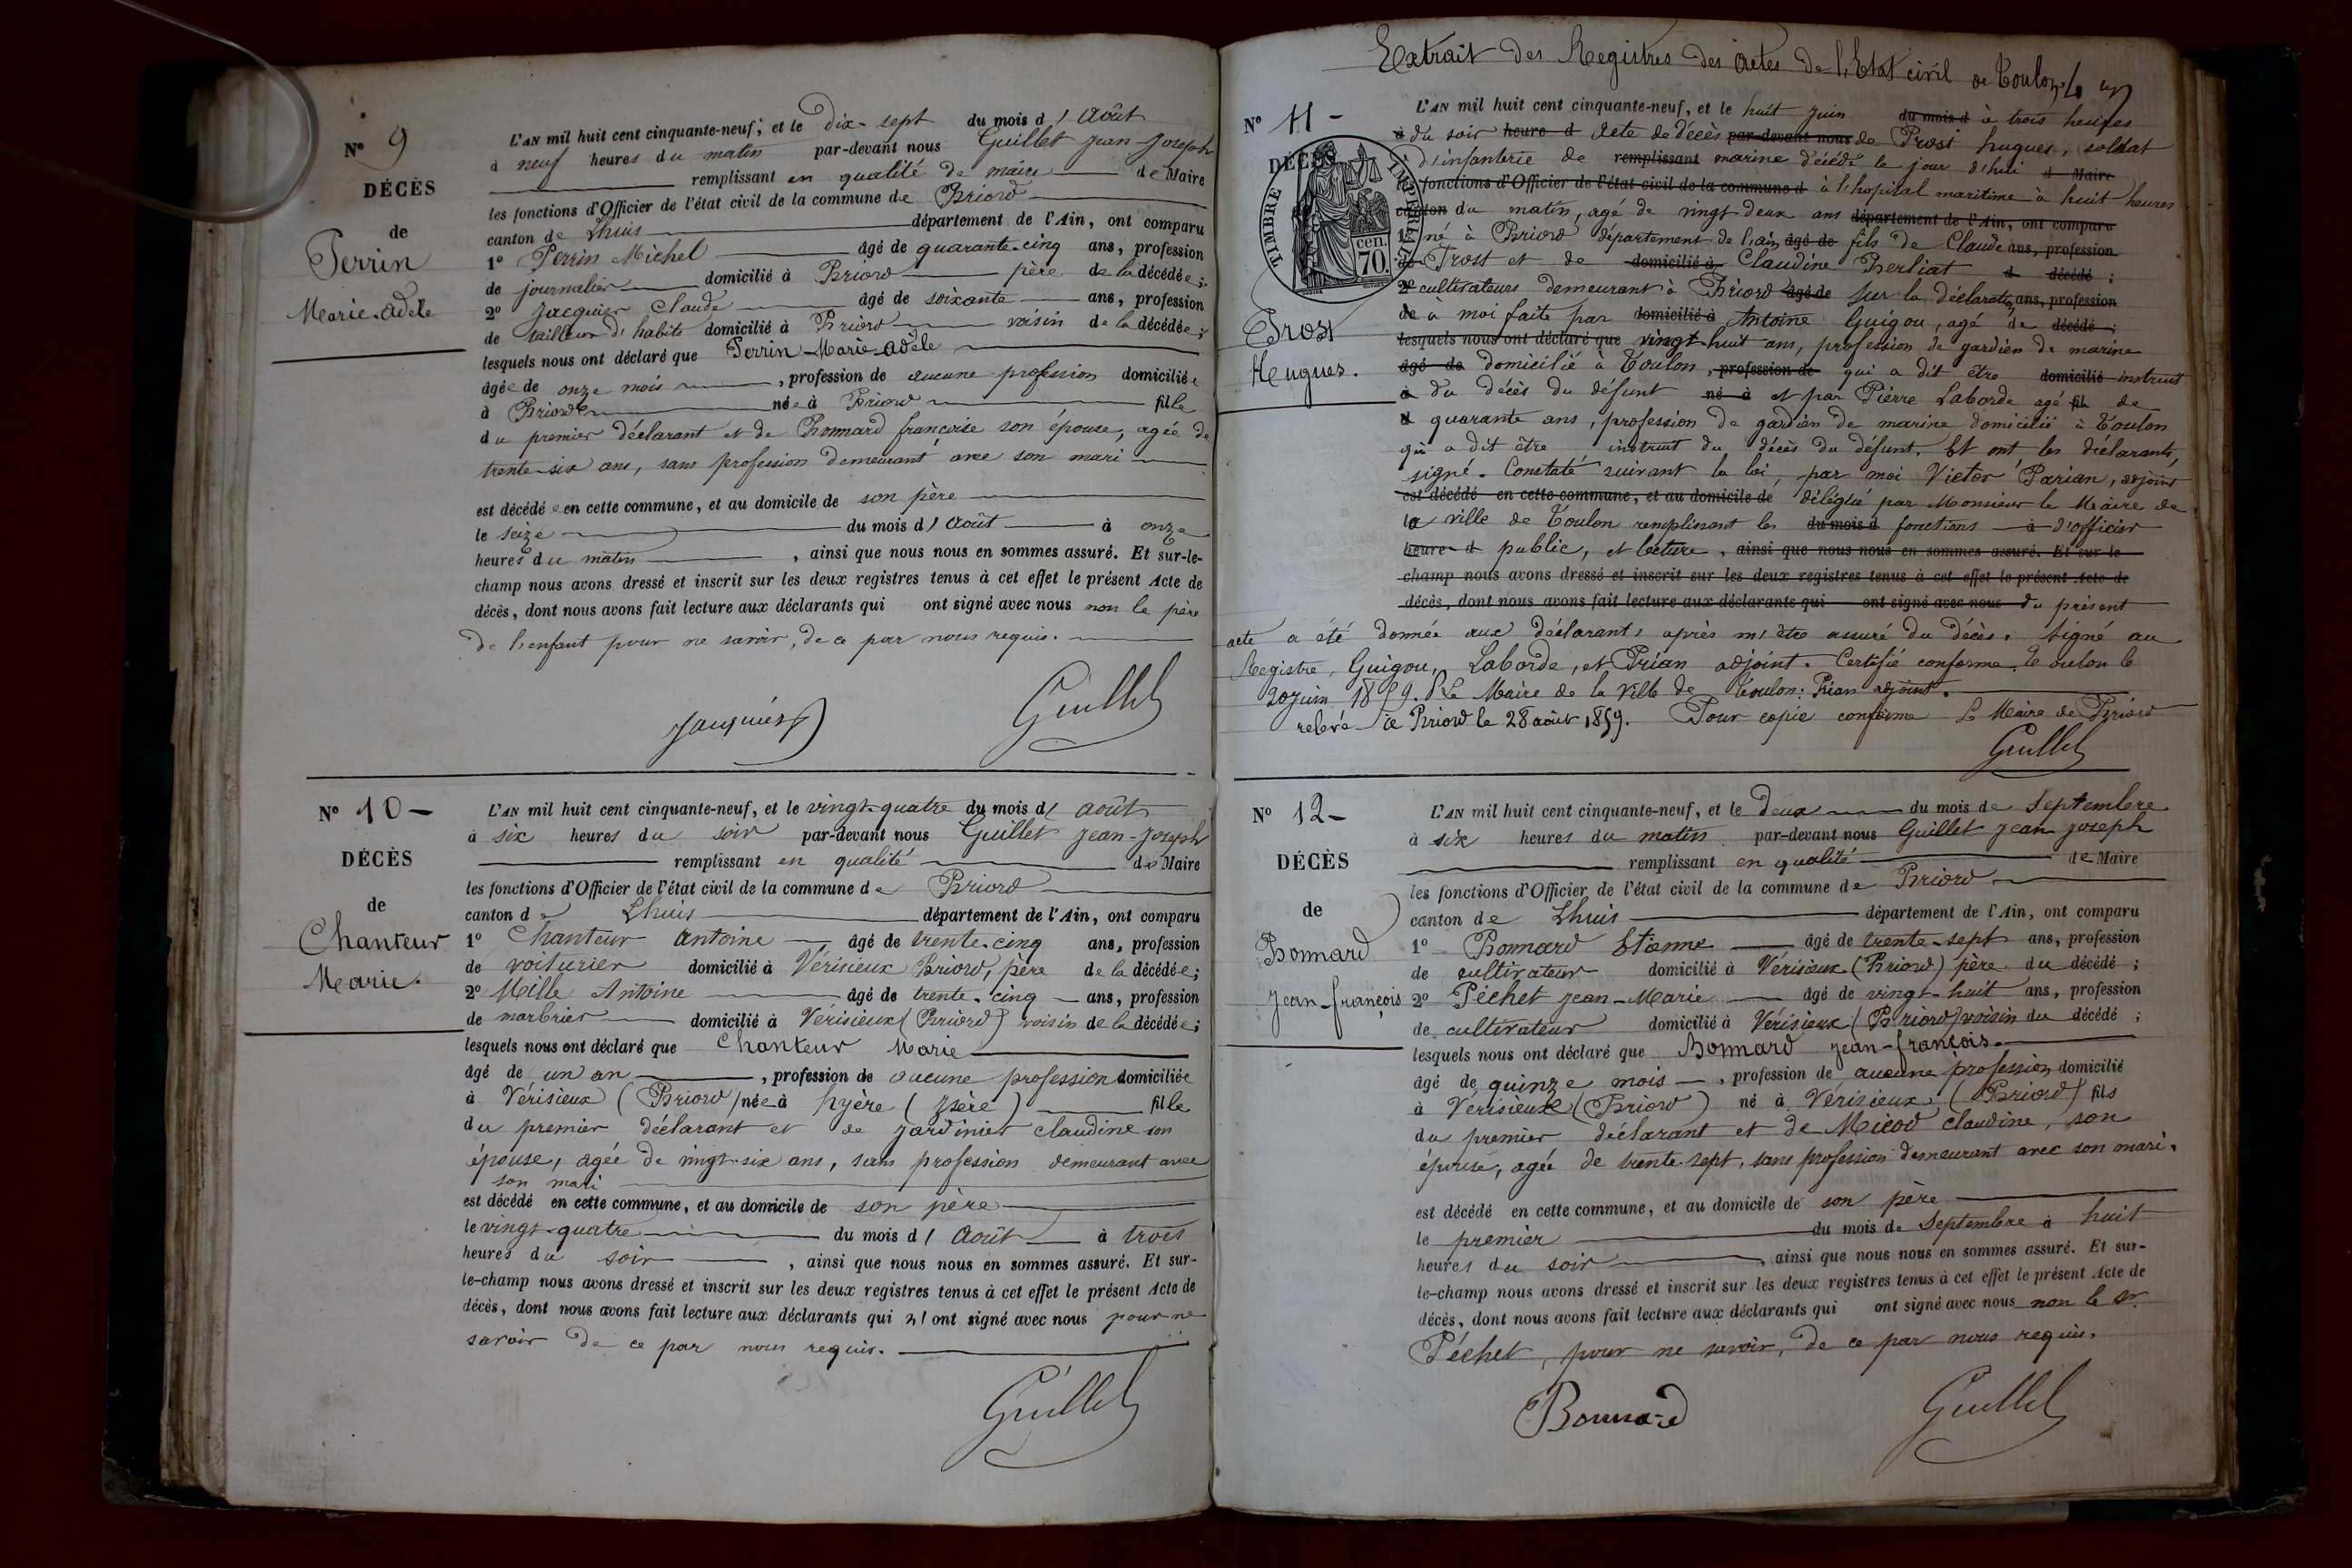 Nº 9
DÉCÈS
de
Perrin
Marie Adèle
L'AN mil huit cent cinquante-neuf, et le dix-sept du mois d'Août
à neuf heures du matin par-devant nous Guillet Jean-Joseph
remplissant en qualité de maire de Maire
les fonctions d'Officier de l'état civil de la commune de Briord
canton de Lhuis département de l'Ain, ont comparu
1º Perrin Michel âgé de quarante-cinq ans, profession
de journalier domicilié à Briord père de la décédée ;
2º Jacquier Claude âgé de soixante ans, profession
de tailleur d'habits domicilié à Briord voisin de la décédée ;
lesquels nous ont déclaré que Perrin Marie Adèle
âgée de onze mois , profession de aucune profession domiciliée
à Briord née à Briord fille
du premier déclarant et de Bonnard françoise son épouse, agée de
trente-six ans, sans profession demeurant avec son mari
est décédée en cette commune, et au domicile de son père
le seize du mois d'Août à onze
heures du matin , ainsi que nous nous en sommes assuré. Et sur-le-
champ nous avons dressé et inscrit sur les deux registres tenus à cet effet le présent Acte de
décès, dont nous avons fait lecture aux déclarants qui ont signé avec nous non le père
de l'enfant pour ne savoir, de ce par nous requis.
Jacquier Guillet
Nº 10
DÉCÈS
de
Chanteur
Marie.
L'AN mil huit cent cinquante-neuf, et le vingt-quatre du mois d'août
à six heures du soir par-devant nous Guillet Jean-Joseph
remplissant en qualité de Maire
les fonctions d'Officier de l'état civil de la commune de Briord
canton de Lhuis département de l'Ain, ont comparu
1º Chanteur Antoine âgé de trente-cinq ans, profession
de voiturier domicilié à Vérisieux Briord, père de la décédée ;
2º Mille Antoine âgé de trente-cinq ans, profession
de marbrier domicilié à Vérisieux (Briord) voisin de la décédée ;
lesquels nous ont déclaré que Chanteur Marie
âgé de un an , profession de aucune profession domiciliée
à Vérisieux (Briord) née à hyère (Isère) fille
du premier déclarant et de Jardinier Claudine son
épouse, agée de vingt-six ans, sans profession demeurant avec
son mari
est décédé en cette commune, et au domicile de son père
le vingt-quatre du mois d'Août à trois
heures du soir , ainsi que nous nous en sommes assuré. Et sur-
le-champ nous avons dressé et inscrit sur les deux registres tenus à cet effet le présent Acte de
décès, dont nous avons fait lecture aux déclarants qui n'ont signé avec nous pour ne
savoir de ce par nous requis.
Guillet
Extrait des Registres des actes de l'Etat civil de Toulon
Nº 11
DÉCÈS
TIMBRE IMPÉRIAL
70 cen.
Trost
Hugues.
L'AN mil huit cent cinquante-neuf, et le huit Juin du mois d à trois heures
à du soir heure d Acte de décès par-devant nous de Trost hugues, soldat
d'infanterie de remplissant marine décédé le jour d'hui d Maire
les fonctions d'Officier de l'état civil de la commune d à l'hopital maritime à huit heures
canton du matin, agé de vingt-deux ans département de l'Ain, ont comparu
1º né à Briord département de l'ain âgé de fils de Claude ans, profession
de Trost et de domicilié à Claudine Berliat d décédé ;
2º cultivateurs demeurant à Briord âgé de sur la déclaration ans, profession
de à moi faite par domicilié à Antoine Guigou, agé de décédé ;
lesquels nous ont déclaré que vingt-huit ans, profession de gardien de marine
âgé de domicilié à Toulon, profession de qui a dit être domicilié instruit
à du décès du défunt né à et par Pierre Laborde agé fil de
d quarante ans, profession de gardien de marine domicilié à Toulon
qui a dit être instruit du décès du défunt. Et ont, les déclarants,
signé. Constaté suivant la loi, par moi Victor Parian, adjoint
est décédé en cette commune, et au domicile de délégué par Monsieur le Maire de
la ville de Toulon remplissant les du mois d fonctions à d'officier
heure d public, et lecture, ainsi que nous nous en sommes assuré. Et sur le
champ nous avons dressé et inscrit sur les deux registres tenus à cet effet le présent Acte de
décès, dont nous avons fait lecture aux déclarants qui ont signé avec nous du présent
acte a été donnée aux déclarants après m'être assuré du décès. Signé au
Registre, Guigou, Laborde, et Prian adjoint. Certifié conforme. Toulon le
20 juin 1859. Le Maire de la Ville de Toulon: Prian adjoint.
relevé à Briord le 28 août 1859. Pour copie conforme Le Maire de Briord
Guillet
Nº 12
DÉCÈS
de
Bonnard
Jean-françois
L'AN mil huit cent cinquante-neuf, et le deux du mois de Septembre
à six heures du matin par-devant nous Guillet Jean Joseph
remplissant en qualité de Maire
les fonctions d'Officier de l'état civil de la commune de Briord
canton de Lhuis département de l'Ain, ont comparu
1º Bonnard Etienne âgé de trente-sept ans, profession
de cultivateur domicilié à Vérisieux (Briord) père du décédé ;
2º Péchet Jean-Marie âgé de vingt-huit ans, profession
de cultivateur domicilié à Vérisieux (Briord) voisin du décédé ;
lesquels nous ont déclaré que Bonnard Jean-françois
âgé de quinze mois , profession de aucune profession domicilié
à Vérisieux (Briord) né à Vérisieux (Briord) fils
du premier déclarant et de Micod Claudine, son
épouse, agée de trente-sept, sans profession demeurant avec son mari.
est décédé en cette commune, et au domicile de son père
le premier du mois de Septembre à huit
heures du soir , ainsi que nous nous en sommes assuré. Et sur-
le-champ nous avons dressé et inscrit sur les deux registres tenus à cet effet le présent Acte de
décès, dont nous avons fait lecture aux déclarants qui ont signé avec nous non le Sr.
Péchet, pour ne savoir, de ce par nous requis.
Bonnard Guillet